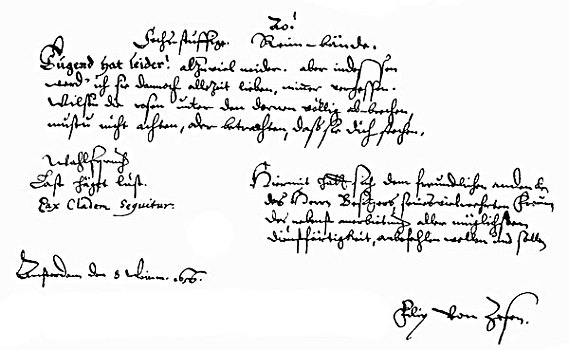 Sechsstuffige Reim-bände.
Tugend hat leider! alzuviel neider. aber indessen
werd' ich sie dannoch allezeit lieben, nimmer vergessen.
Wilstu die rosen unter den dornen völlig abbrechen,
mustu nicht achten, oder betrachten, daß sie dich stechen.
Wahlspruch
Last hägt lust.
Pax Cladem Sequitur.
Hiermit sich dem freundlichen
des Herrn Besitzers, seines
der aller möglichsten
dienstfärtigkeit, anbefehlen wollen und sollen
Amsterdam den 8
Filip von Zesen.